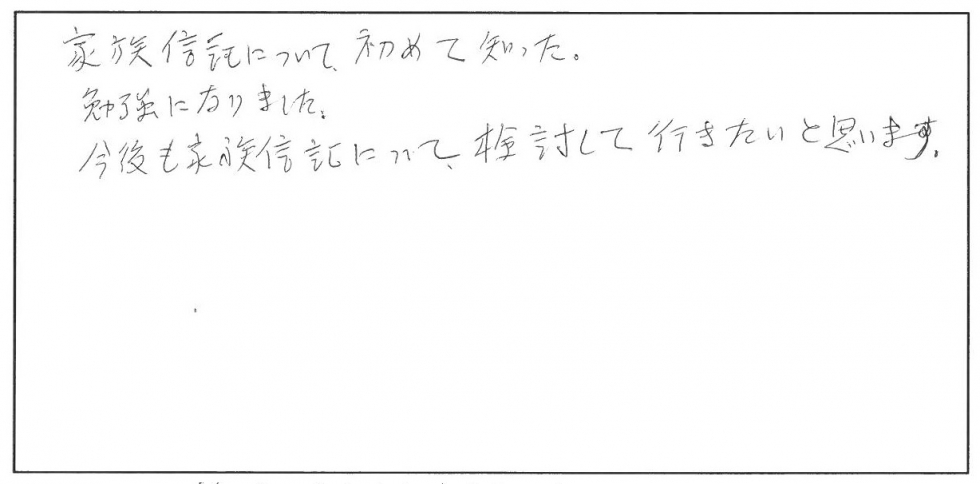 家族信託について、初めて知った。
勉強になりました。
今後も家族信託について、検討して行きたいと思います。